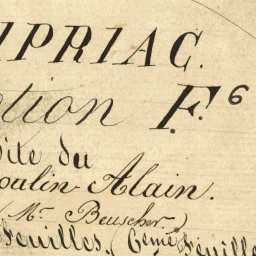 IPRIAC.
ction F. 6
Dite du
oulin-Alain.
(Mr. Beuscher.)
Feuilles. (6eme Feuille